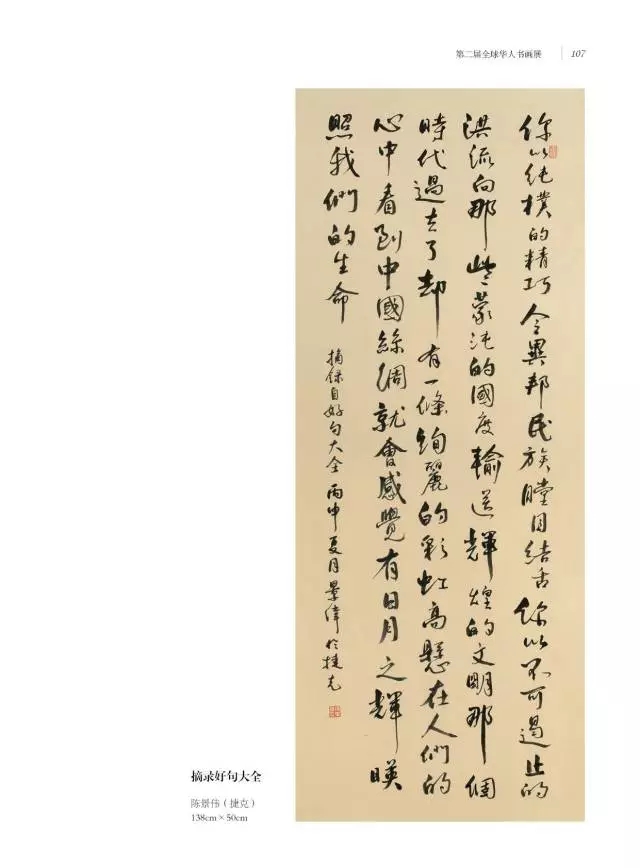 第二届全球华人书画展 107
你以純樸的精巧令異邦民族瞠目結舌你以不可遏止的
洪流向那些蒙沌的國度輸送輝煌的文明那個
時代過去了却有一條絢麗的彩虹高懸在人們的
心中看到中國絲綢就會感覺有日月之輝暎
照我們的生命
摘録自好句大全丙申夏月景偉於捷克
摘录好句大全
陈景伟（捷克）
138cm × 50cm